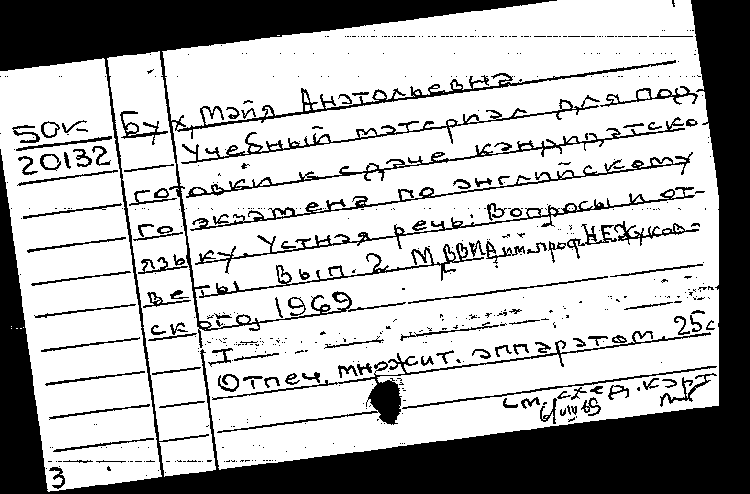 50к Бух, Майя Анатольевна.
20132 Учебный материал для под-
готовки к сдаче кандидатско-
го экзамена по английскому
языку. Устная речь: Вопросы и от-
веты Вып. 2. М, ВВИА им. проф. Н.Е.Жуков-
ского, 1969
I
Отпеч. множит. аппаратом. 25с
см. след. карт
6/VIII 69
3